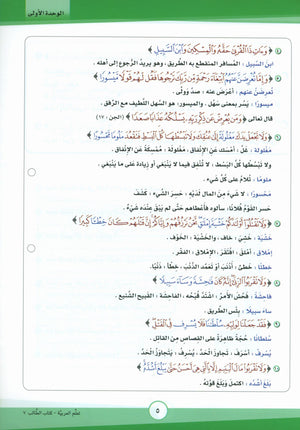 الوحدة الأولى
﴿وَءَاتِ ذَا ٱلْقُرْبَىٰ حَقَّهُۥ وَٱلْمِسْكِينَ وَٱبْنَ ٱلسَّبِيلِ﴾
ابنَ السَّبِيلِ : المُسافر المنقطع به الطَّريق، وهو يريدُ الرُّجوع إلى أهله.
﴿وَإِمَّا تُعْرِضَنَّ عَنْهُمُ ٱبْتِغَآءَ رَحْمَةٍ مِّن رَّبِّكَ تَرْجُوهَا فَقُل لَّهُمْ قَوْلًا مَّيْسُورًا﴾
تُعرِضَنَّ عَنهُمُ : أعْرَضَ عنه : صدَّ وتولّى.
مَيسورًا : يُسْر بمعنى سَهُل، والميسور: هو السَّهل اللَّطيف مع الرِّفق.
قال تعالى ﴿وَمَن يُعْرِضْ عَن ذِكْرِ رَبِّهِۦ يَسْلُكْهُ عَذَابًا صَعَدًا﴾ (الجن: ١٧)
﴿وَلَا تَجْعَلْ يَدَكَ مَغْلُولَةً إِلَىٰ عُنُقِكَ وَلَا تَبْسُطْهَا كُلَّ ٱلْبَسْطِ فَتَقْعُدَ مَلُومًا مَّحْسُورًا﴾
مَغْلُولَةً : غلّ : أمْسَكَ عن الإنفاق، مَغْلُولَة : مُمْسِكَة عن الإنفاق.
وَلا تَبْسُطْهَا كُلَّ البَسْطِ : لا تُنْفِق فيما لا ينبغي أو زيادة على ما ينبغي.
مَلُومًا : تُلامُ على كُلِّ شيء.
مَحْسُورًا : لا شيءَ مِنَ المال لَدَيْهِ، حَسَرَ الشَّيء : كَشَفَ
حَسَرَ القَوْمُ فُلانًا : سألوه فأعطاهم حتّى لم يَبْقَ عنده شيءٌ
﴿وَلَا تَقْتُلُوٓا۟ أَوْلَـٰدَكُمْ خَشْيَةَ إِمْلَـٰقٍ نَّحْنُ نَرْزُقُهُمْ وَإِيَّاكُمْ إِنَّ قَتْلَهُمْ كَانَ خِطْـًٔا كَبِيرًا﴾
خَشْيَةَ : خَشِيَ : خاف، والخَشْيَة : الخَوْف.
إِمْلاقٍ : أمْلَقَ : افْتَقَرَ، الإمْلاق : الفَقْر.
خِطْئًا : خَطِئَ : أذْنَبَ أو تَعَمَّدَ الذَّنْبَ، خِطْأ : ذَنْبًا.
﴿وَلَا تَقْرَبُوا۟ ٱلزِّنَىٰٓ إِنَّهُۥ كَانَ فَـٰحِشَةً وَسَآءَ سَبِيلًا﴾
فاحِشَة : فَحُشَ الأمرُ : اشتدَّ قُبْحُه، الفاحشة : القبيح الشَّنيع
ساءَ سبيلًا : بِئْسَ طريقًا.
﴿فَقَدْ جَعَلْنَا لِوَلِيِّهِۦ سُلْطَـٰنًا فَلَا يُسْرِف فِّى ٱلْقَتْلِ﴾
سُلْطَانًا : حُجَّة ظاهرة على القِصاصِ مِنَ القاتِلِ.
يُسْرِفْ : أسْرَفَ : تجاوزَ الحَدَّ، يُسْرِفُ : يَتَجاوزُ الحَدَّ.
﴿وَلَا تَقْرَبُوا۟ مَالَ ٱلْيَتِيمِ إِلَّا بِٱلَّتِى هِىَ أَحْسَنُ حَتَّىٰ يَبْلُغَ أَشُدَّهُۥ﴾
بَلَغَ أَشُدَّهُ : اكتملَ وبَلَغَ قُوَّتَهُ.
٥
تعلّم العربيّة - كتاب الطّالب ٧